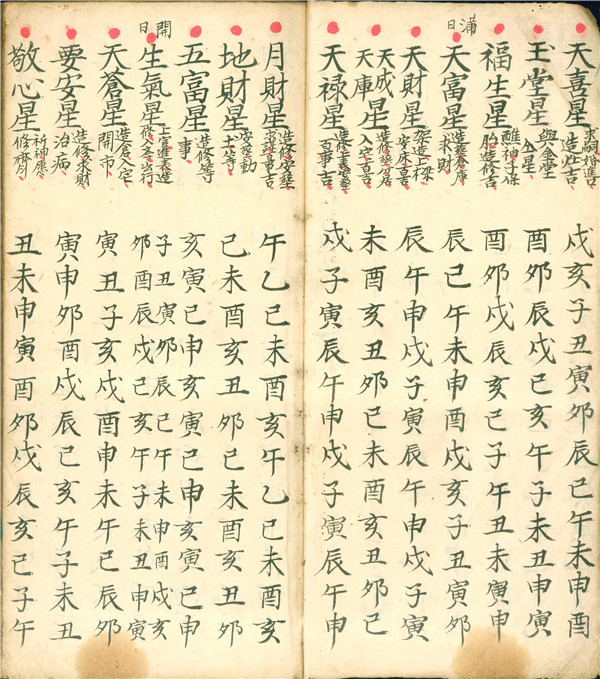 天喜星 造壮吉 戌亥子丑寅夘辰巳午未申酉
玉堂星 與金堂仝星 酉夘辰戌巳亥午子未丑申寅
福生星 醮神子保胎造修吉 酉夘戌辰亥巳子午丑未寅申
满日
天富星 求財 辰巳午未申酉戌亥子丑寅夘
天財星 架造上樑安床喜 辰午申戌子寅辰午申戌子寅
天成星
天庫 入宅喜 未酉亥丑夘巳未酉亥丑夘巳
天禄星 百事吉 戌子寅辰午申戌子寅辰午申
月財星 造修安葬 午乙巳未酉亥午乙巳未酉亥
地財星 安葬動土等 巳未酉亥丑夘巳未酉亥丑夘
五富星 造修等事 亥寅巳申亥寅巳申亥寅巳申
開日
生氣星 上官進表造修入宅出行 子丑寅夘辰巳午未申酉戌亥
夘酉辰戌巳亥午子未丑申寅
天蒼星 造倉入宅開市 寅丑子亥戌酉申未午巳辰夘
要安星 造修求財治病 寅申夘酉戌辰巳亥午子未丑
敬心星 祈神 丑未申寅酉夘戌辰亥巳子午